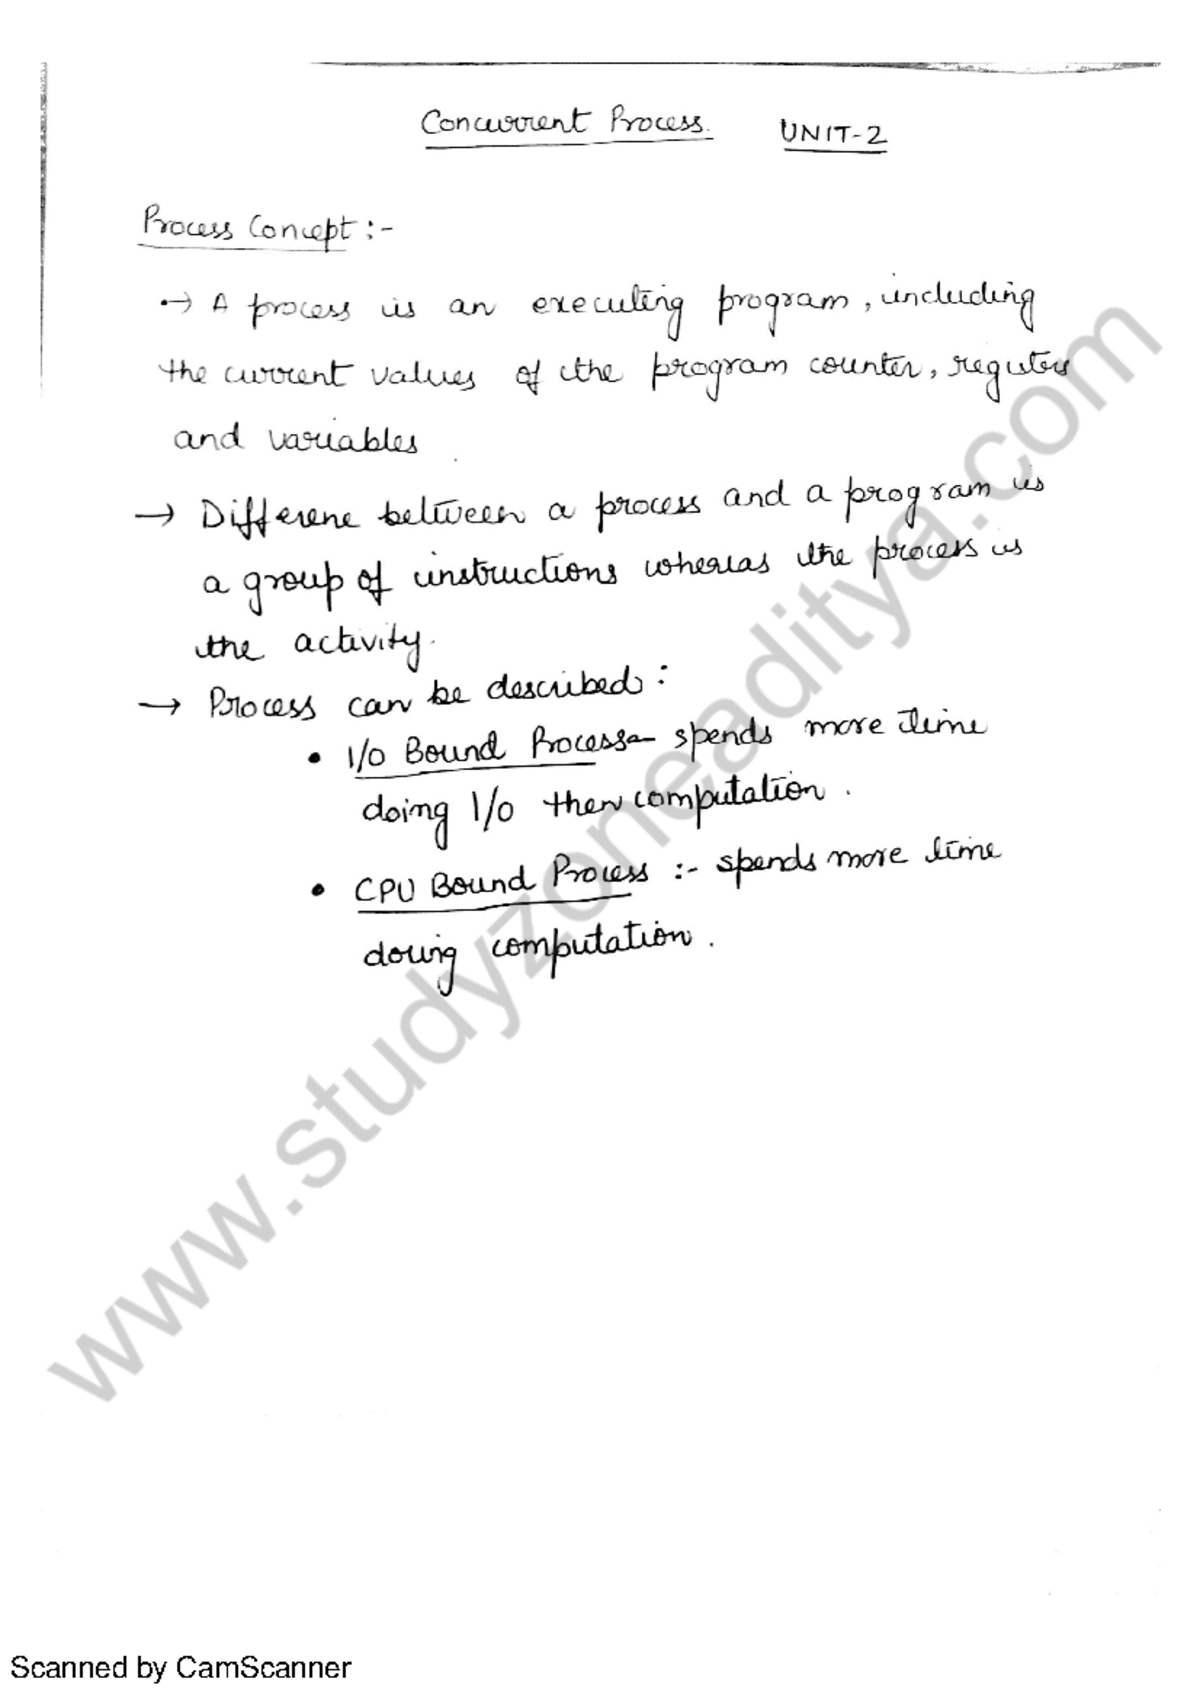 Concurrent Process. UNIT-2
Process Concept :-
•→ A process is an executing program, including
the current values of the program counter, registers
and variables
→ Differene between a process and a program is
a group of instructions whereas the process is
the activity.
→ Process can be described:
• I/O Bound Process- spends more time
doing I/O then computation.
• CPU Bound Process :- spends more time
doing computation.
www.studyzoneaditya.com
Scanned by CamScanner